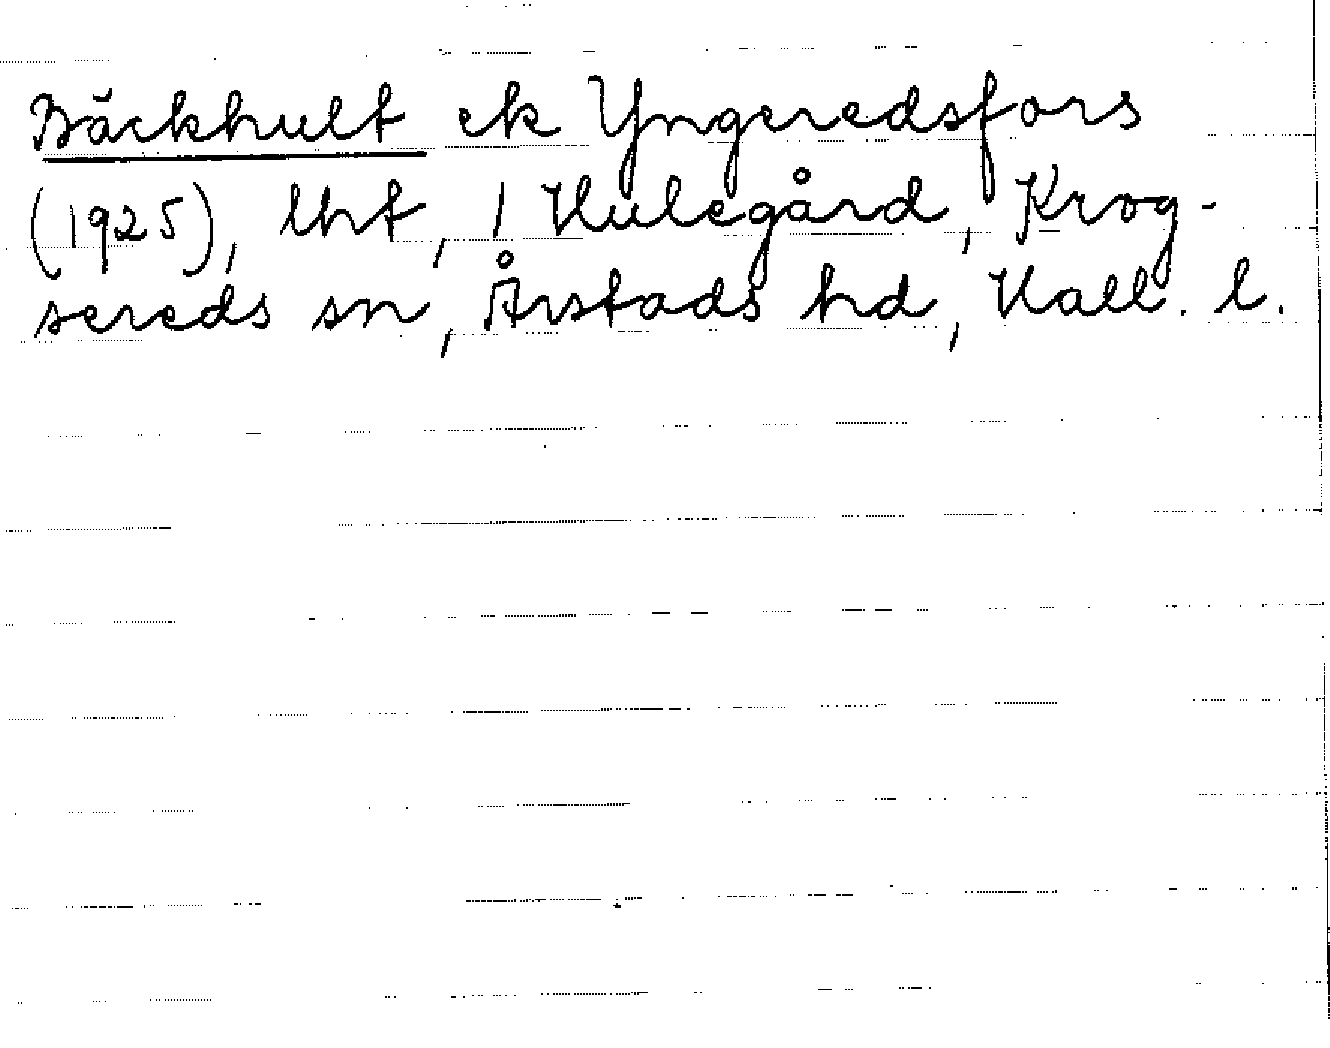 Bäckhult ek Yngeredsfors
(1925), lht, 1 Hulegård, Krog-
sereds sn, Årstads hd, Hall. l.